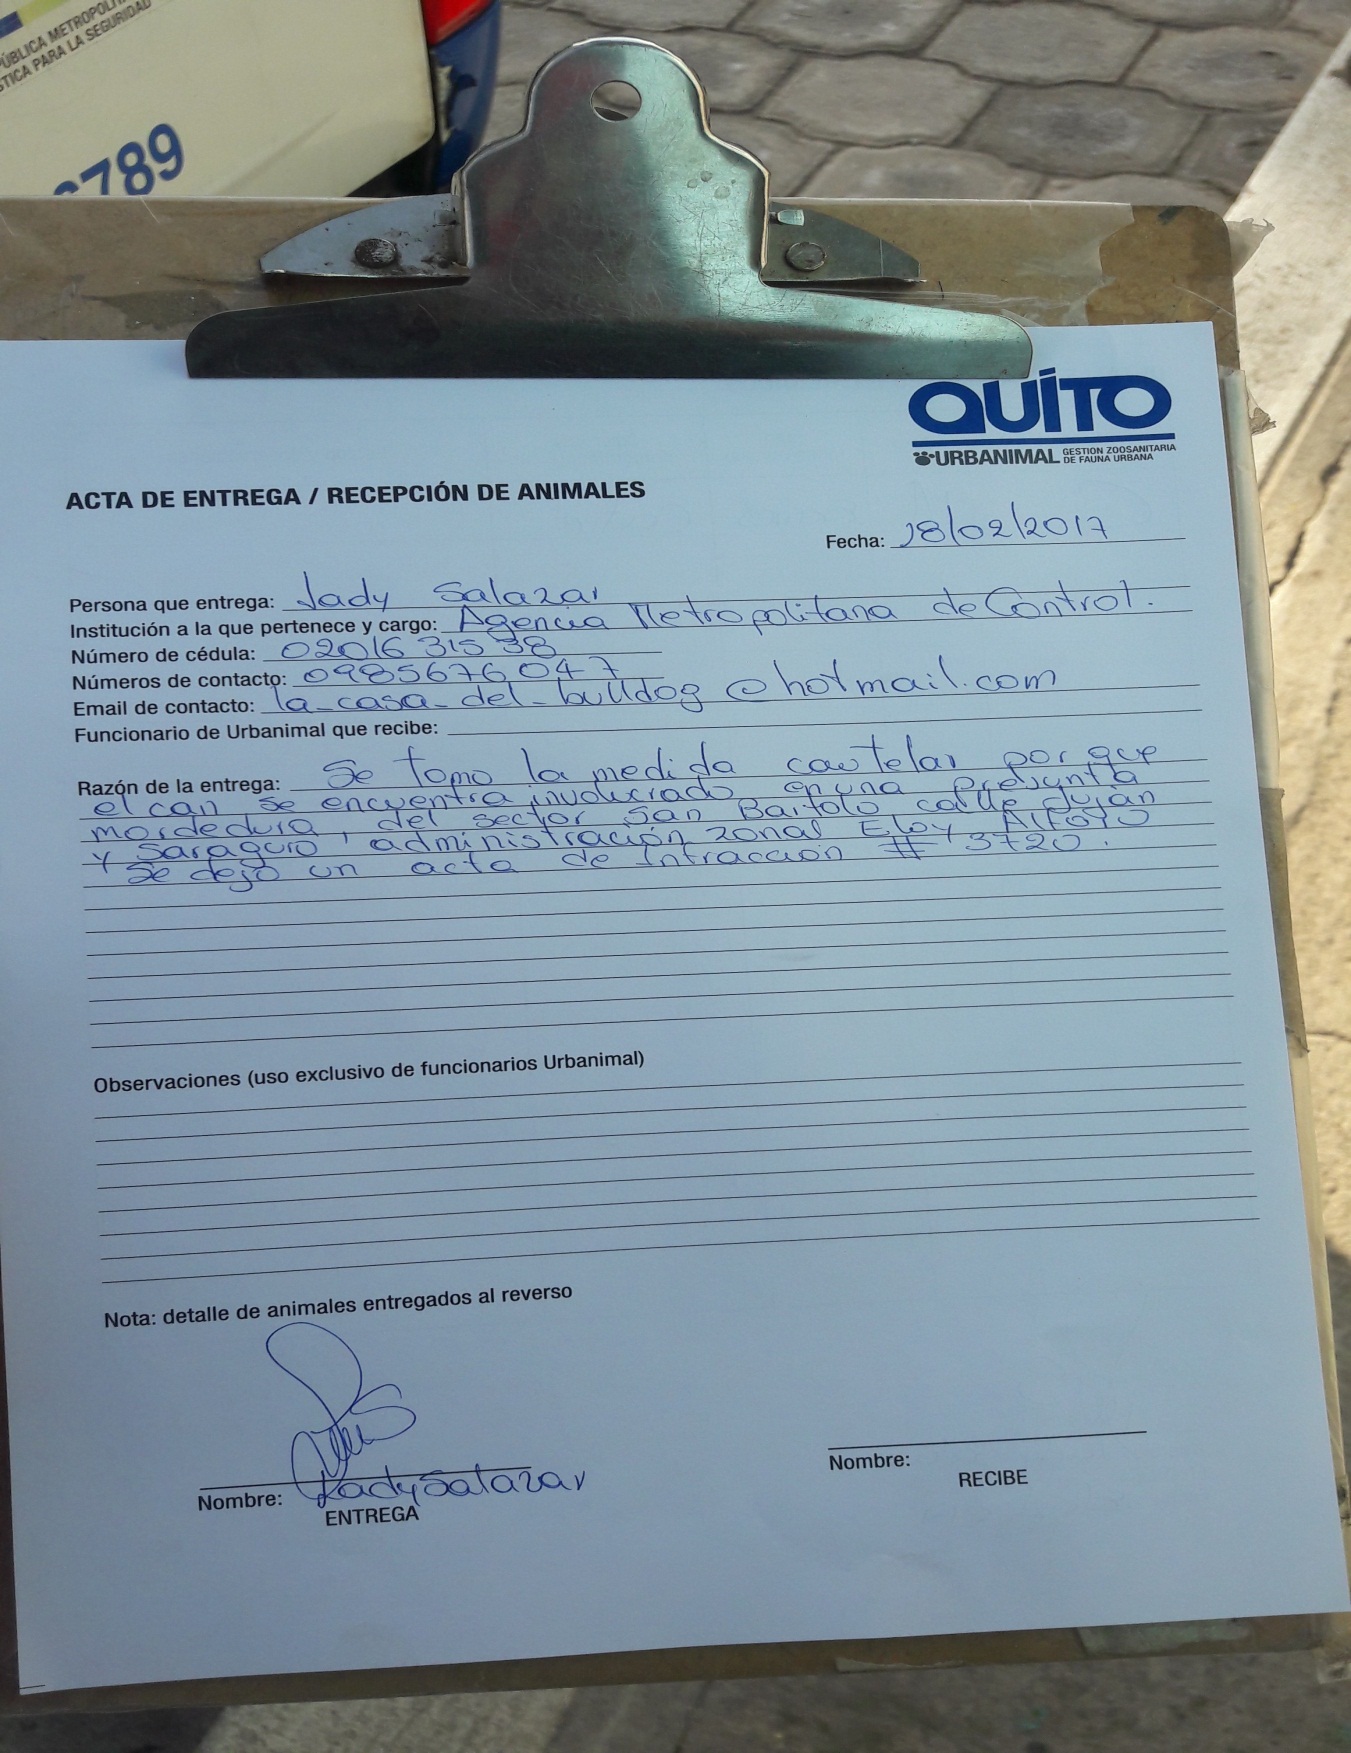 PÚBLICA METROPOLIT
STICA PARA LA SEGURIDAD
789
QUITO
URBANIMAL GESTION ZOOSANITARIA DE FAUNA URBANA
ACTA DE ENTREGA / RECEPCIÓN DE ANIMALES
Fecha: 28/02/2017
Persona que entrega: Jady Salazar
Institución a la que pertenece y cargo: Agencia Metropolitana de Control.
Número de cédula: 0201631538
Números de contacto: 0985676047
Email de contacto: la_casa_del_bulldog@hotmail.com
Funcionario de Urbanimal que recibe:
Razón de la entrega: Se tomo la medida cautelar por que
el can se encuentra involucrado en una presunta
mordedura, del sector San Bartolo calle Duján
y Saraguro, administración zonal Eloy Alfaro
Se dejo un acta de Infracción # 3720.
Observaciones (uso exclusivo de funcionarios Urbanimal)
Nota: detalle de animales entregados al reverso
Nombre: Kady Salazar
ENTREGA
Nombre:
RECIBE